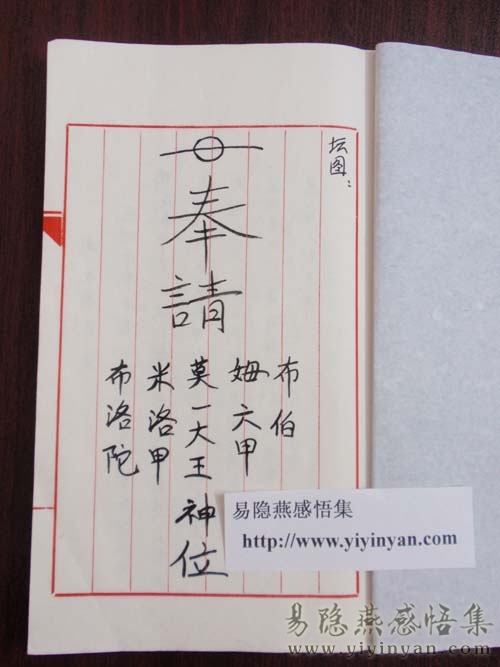 坛图：
奉請
布伯
姆六甲
莫一大王神位
米洛甲
布洛陀
易隐燕感悟集
http://www.yiyinyan.com
易隐燕感悟集
www.yiyinyan.com